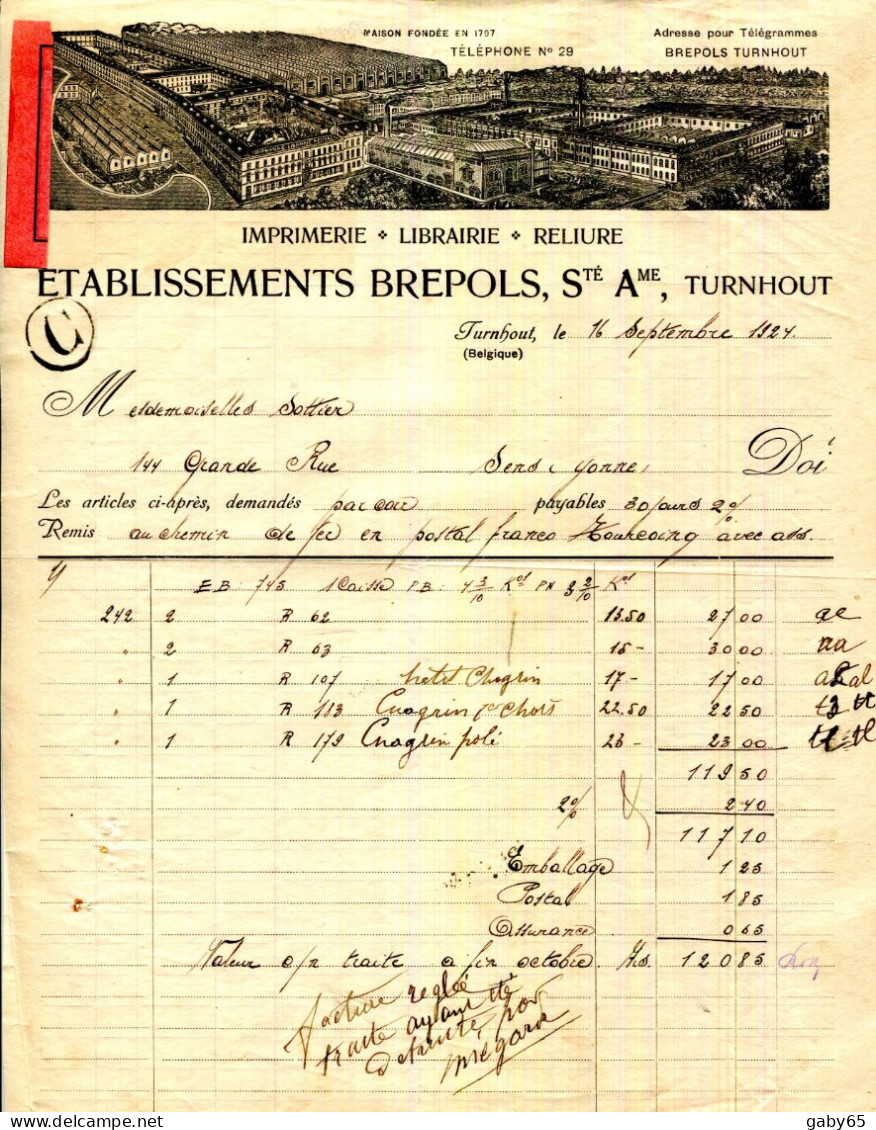 MAISON FONDÉE EN 1797
TÉLÉPHONE No 29
Adresse pour Télégrammes
BREPOLS TURNHOUT
IMPRIMERIE ❖ LIBRAIRIE ❖ RELIURE
ETABLISSEMENTS BREPOLS, STÉ AME, TURNHOUT
C
Turnhout, le 16 Septembre 1924.
(Belgique)
Mesdemoiselles Sottier
144 Grande Rue Sens (Yonne) Doit
Les articles ci-après, demandés par cour payables 30 jours 2%
Remis au chemin de fer en postal franco Tourcoing avec ass.
EB: 745 1 Caisse PB: 4 3/10 Kos PN 3 2/10 Kos
242 2 R 62 13.50 27 00
" 2 R 63 15- 30 00
" 1 R 107 petit Chagrin 17- 17 00
" 1 R 183 Chagrin 1er Choix 22.50 22 50
" 1 R 179 Chagrin poli 23- 23 00
119 50
2% 2 40
117 10
Emballage 1 25
Postal 1 85
Assurance 0 65
Valeur s/n traite a fin octobre Frs. 120 85
facture reglée
traite ayant été
detruite par
mégarde
gaby65